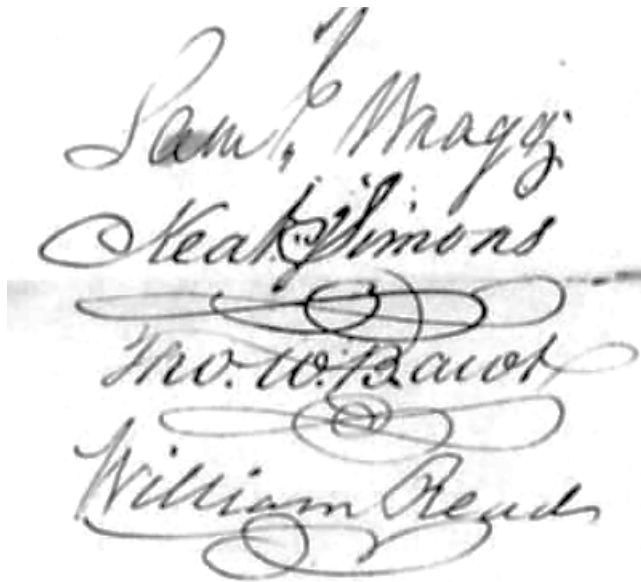 Saml. Wragg.
Keatg. Simons
Tho. W. Bacot
William Read